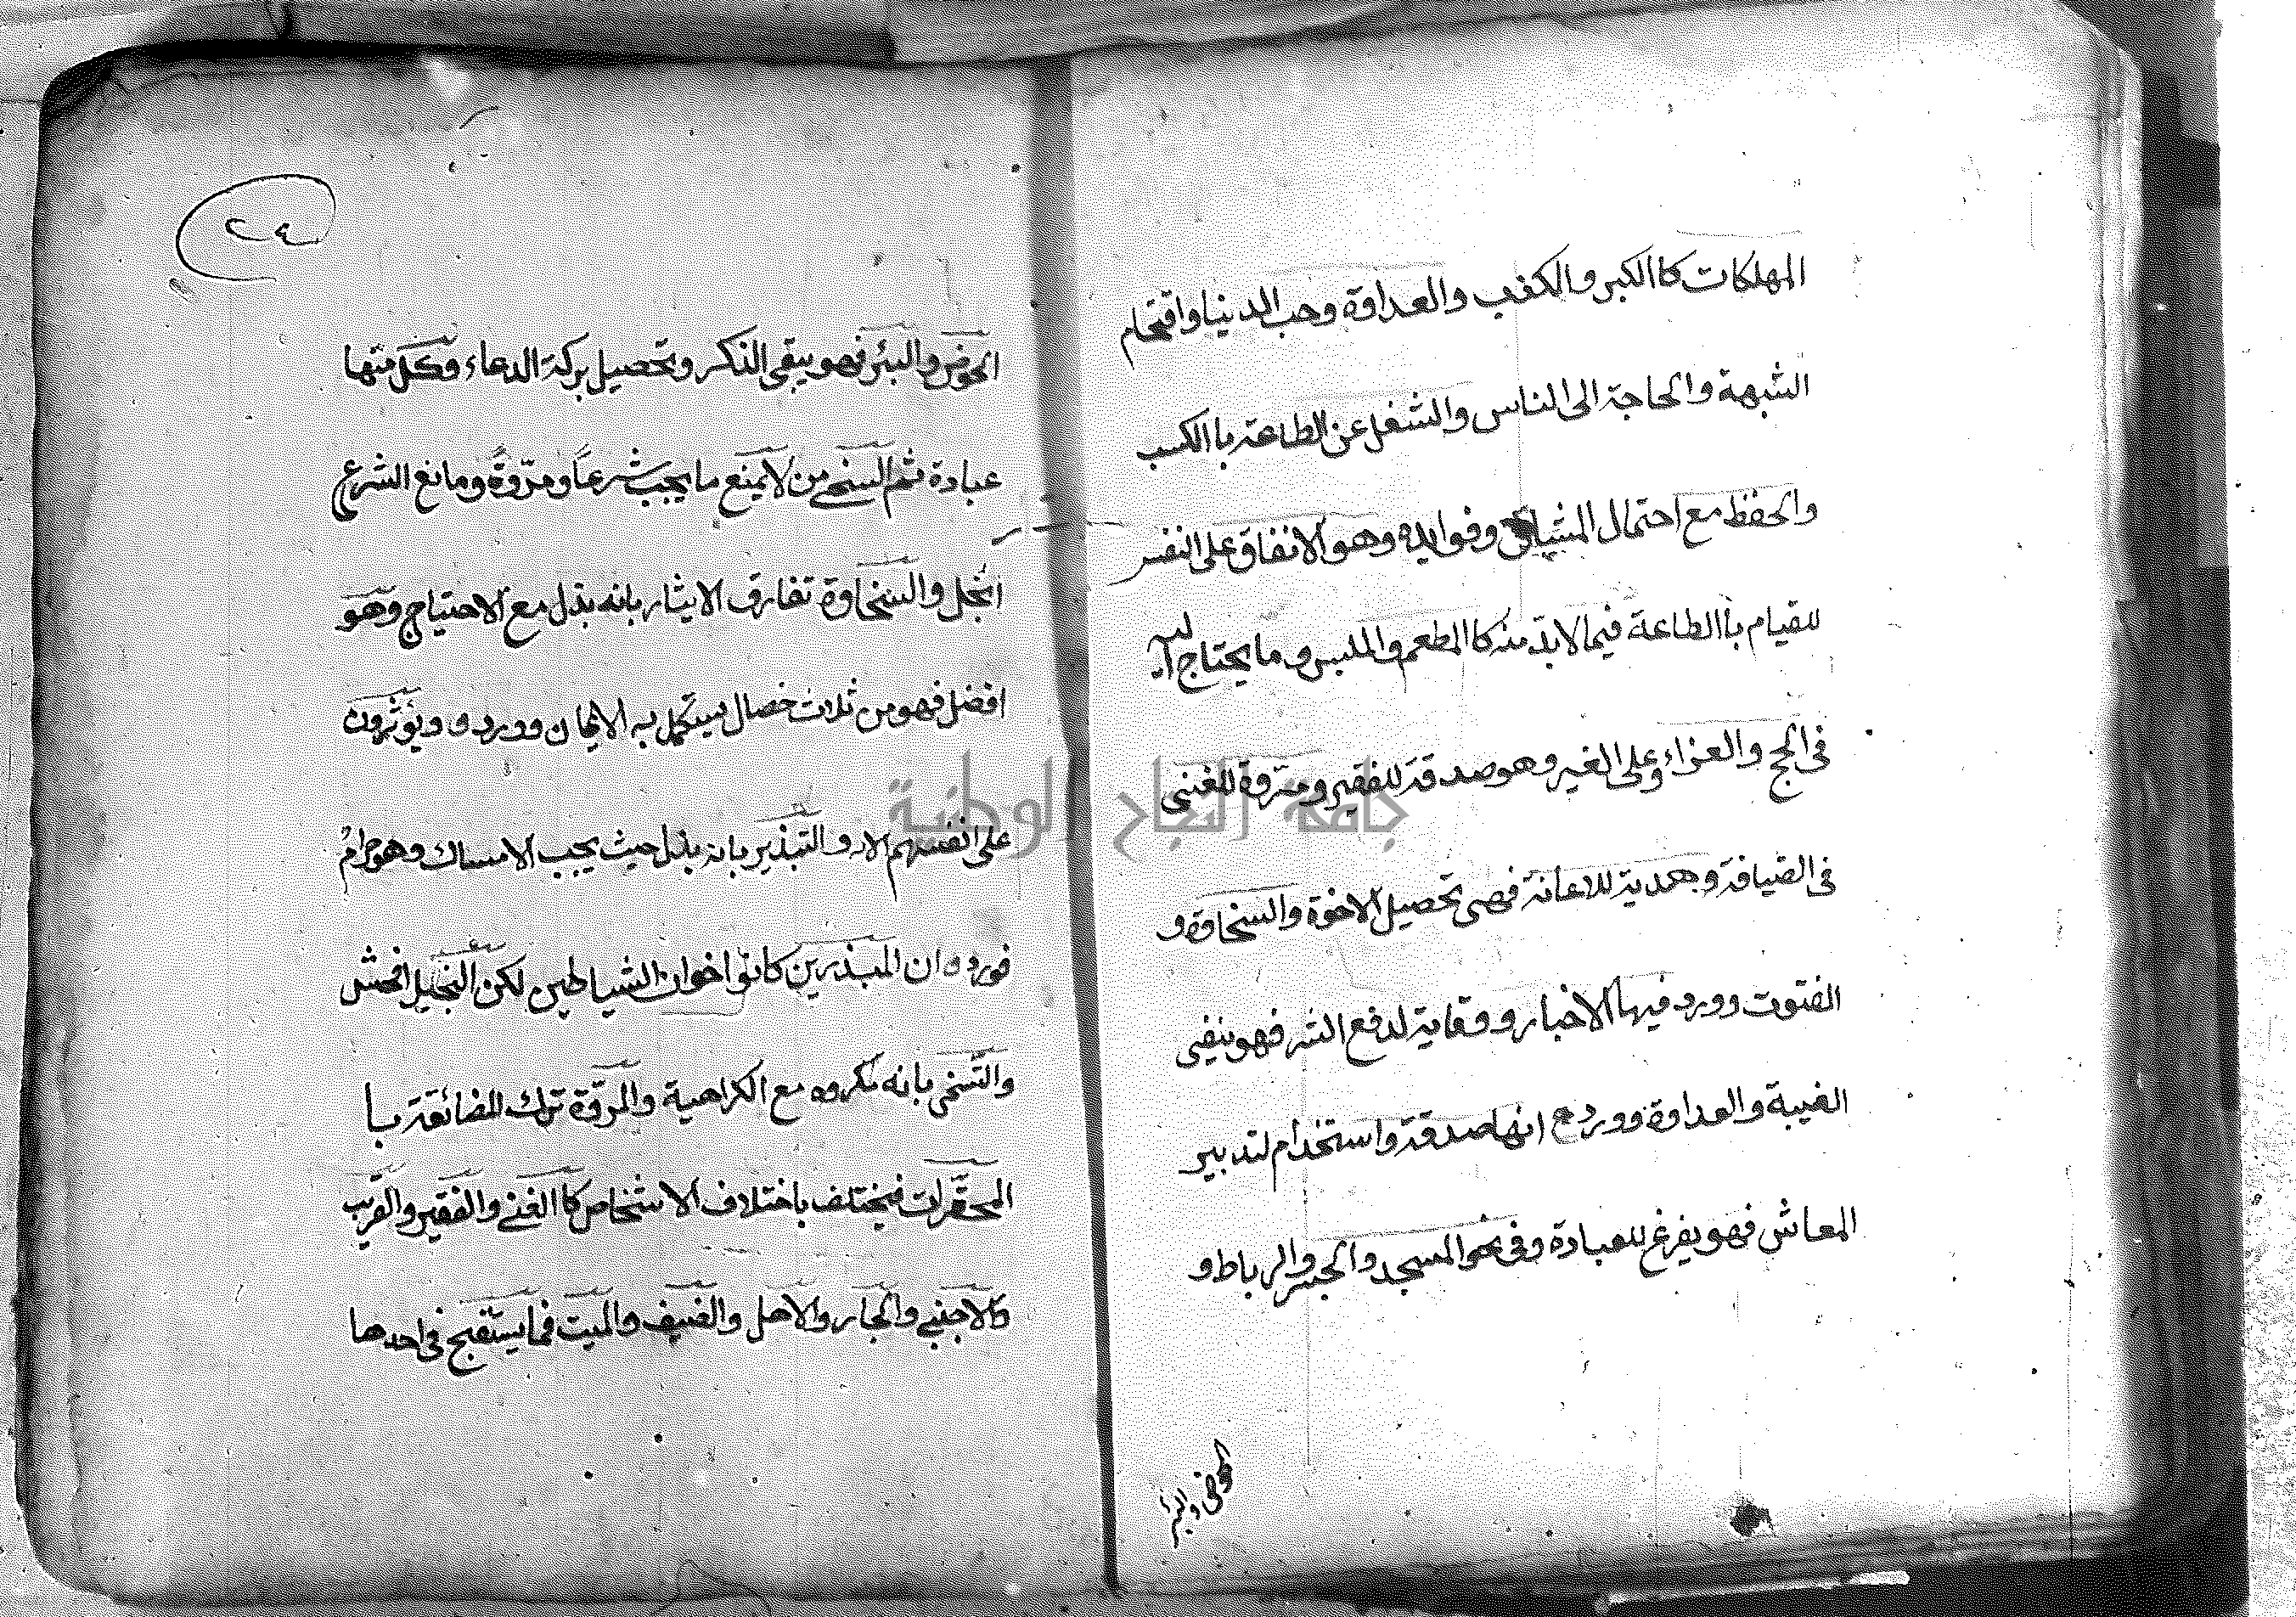 المهلكات كاالكبر والكفب والعداوة وحب الدنيا واقتحام
الشبهة والحاجة الى الناس والشغل عن الطاعة باالكسب
والحفظ مع احتمال المشياق وفوايده وهو الانفاق على النفس
للقيام باالطاعة فيما لابد منه كاالمطعم والملبس وما يحتاج اليه
فى الحج والعزاء وعلى الغير وهو صدقة للفقير ومروة للغنى
فى الضيافة وهدية للاعانة فهى تحصيل الاخوة والسخاوة و
الفتوت وورد فيها الاخبار ووقاية لدفع الشر فهو ينفى
الغيبة والعداوة وورد ع انها صدقة واستخدام لتدبير
المعاش فهو يفرغ للعبادة وفى نحو المسجد والجسر والرباط و
الحوض والبئر
٢٤
الحوض والبئر فهو يبقى الذكر وتحصيل بركة الدعاء وكل منها
عبادة ثم السخى من لا يمنع ما يجب شرعا ومروة ومانع الشرع
ابخل والسخاوة تفارق الايثار بانه بذل مع الاحتياج وهو
افضل فهو من ثلاث خصال يستكمل به الايمان وورد و ويؤثرون
على انفسهم الا والتبذير بانه بذل حيث يجب الامساك وهو حرام
فورد ان المبذرين كانوا اخوان الشياطين لكن البخيل افحش
والتسخى بانه مكروه مع الكراهية والمروة ترك المضائقة با
المحقرات فيختلف باختلاف الاشخاص كاالغنى والفقير والقريب
والاجنبى والجار والاهل والضيف والميت فما يستقبح فى احدها
جامعة النجاح الوطنية